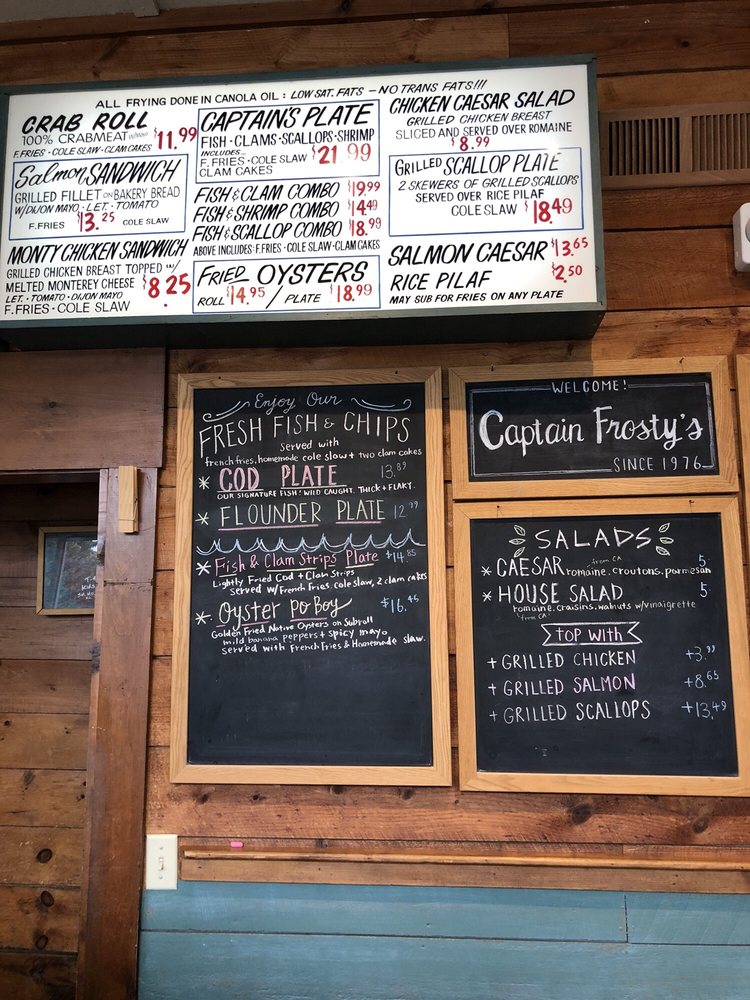 ALL FRYING DONE IN CANOLA OIL : LOW SAT. FATS - NO TRANS FATS!!!
CRAB ROLL
100% CRABMEAT W/MAYO $11.99
F.FRIES · COLE SLAW · CLAM CAKES
Salmon SANDWICH
GRILLED FILLET ON BAKERY BREAD
W/DIJON MAYO · LET · TOMATO
F.FRIES $13.25 COLE SLAW
MONTY CHICKEN SANDWICH
GRILLED CHICKEN BREAST TOPPED W/
MELTED MONTEREY CHEESE $8.25
LET. · TOMATO · DIJON MAYO
F.FRIES · COLE SLAW
CAPTAIN'S PLATE
FISH · CLAMS · SCALLOPS · SHRIMP
INCLUDES...
F. FRIES · COLE SLAW $21.99
CLAM CAKES
FISH & CLAM COMBO $19.99
FISH & SHRIMP COMBO $14.49
FISH & SCALLOP COMBO $18.99
ABOVE INCLUDES: F.FRIES · COLE SLAW · CLAM CAKES
FRIED OYSTERS
ROLL $14.95 / PLATE $18.99
CHICKEN CAESAR SALAD
GRILLED CHICKEN BREAST
SLICED AND SERVED OVER ROMAINE
$8.99
GRILLED SCALLOP PLATE
2 SKEWERS OF GRILLED SCALLOPS
SERVED OVER RICE PILAF
COLE SLAW $18.49
SALMON CAESAR $13.65
RICE PILAF $2.50
MAY SUB FOR FRIES ON ANY PLATE
Enjoy Our
FRESH FISH & CHIPS
served with
french fries, homemade cole slaw + two clam cakes
* COD PLATE 13.89
OUR SIGNATURE FISH! WILD CAUGHT. THICK + FLAKY.
* FLOUNDER PLATE 12.99
* Fish & Clam Strips Plate $14.85
Lightly Fried Cod + Clam Strips
served w/ French Fries, cole slaw, 2 clam cakes
* Oyster Po Boy $16.45
Golden Fried Native Oysters on Subroll
mild banana peppers + spicy mayo
served with French Fries & Homemade slaw.
WELCOME!
Captain Frosty's
SINCE 1976
SALADS
from CA
* CAESAR romaine, croutons, parmesan 5
* HOUSE SALAD 5
romaine, craisins, walnuts w/vinaigrette
"from CA"
TOP WITH
+ GRILLED CHICKEN +3.99
+ GRILLED SALMON +8.65
+ GRILLED SCALLOPS +13.49